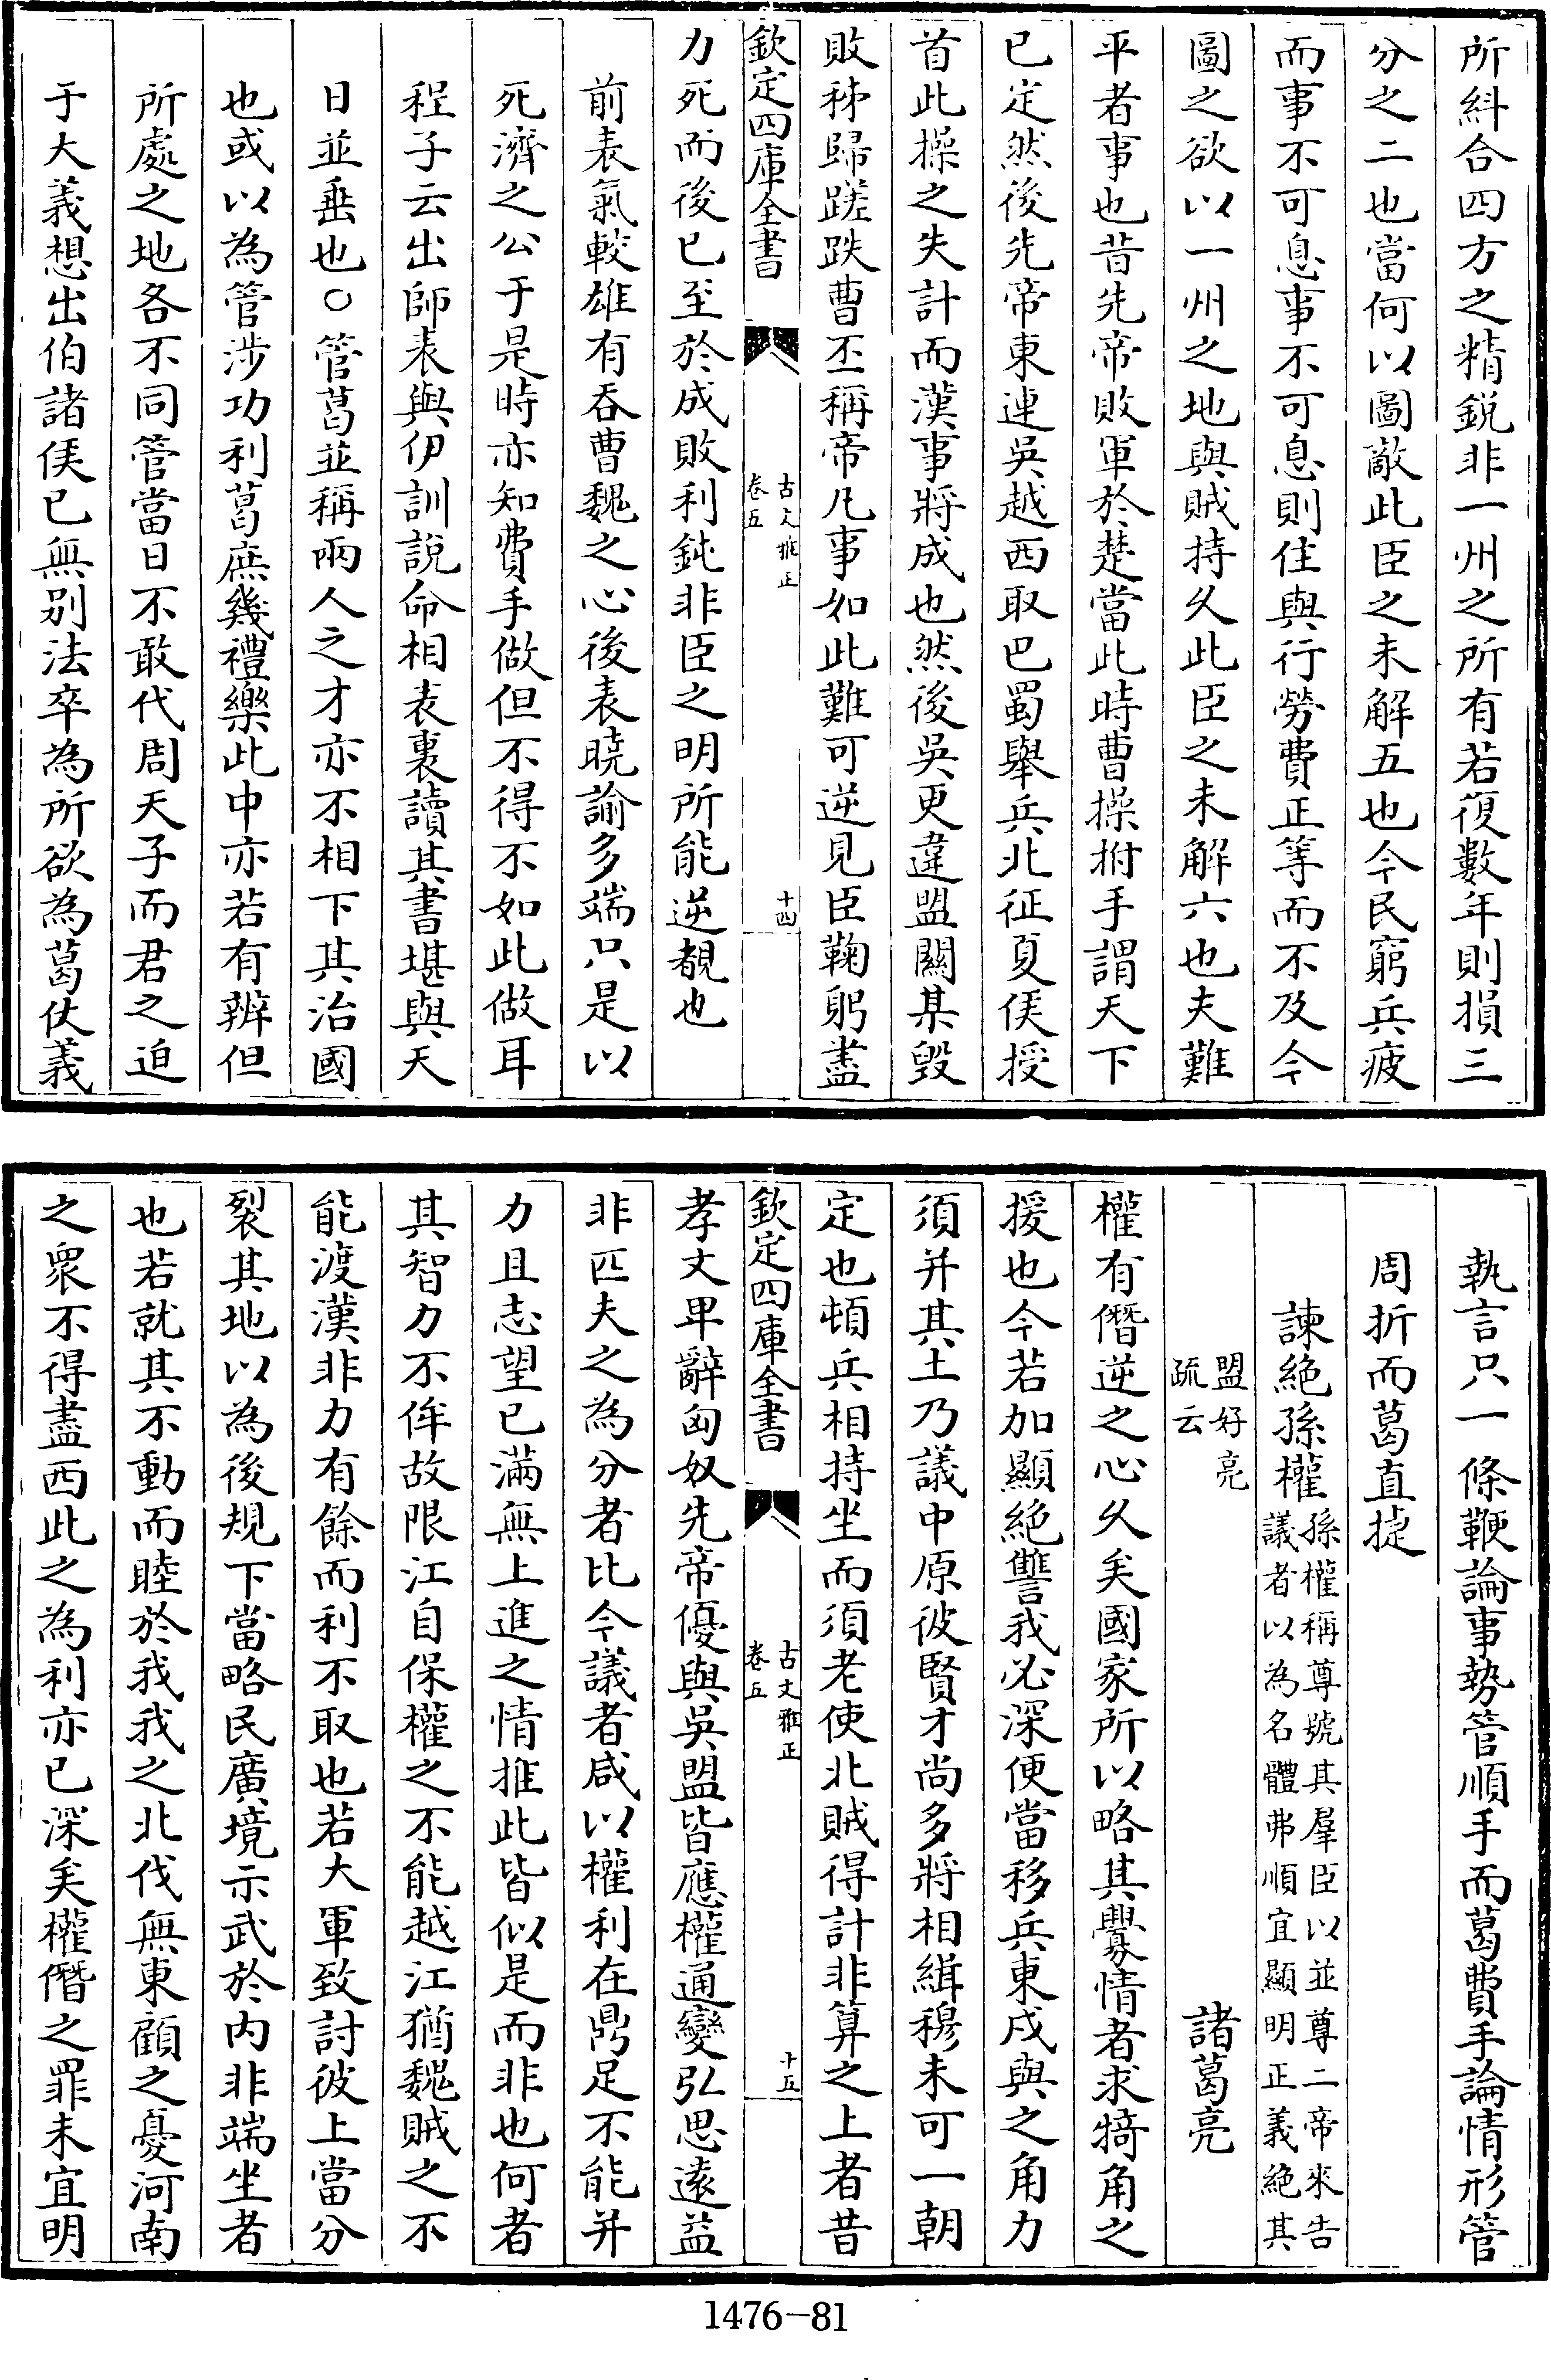 所糾合四方之精鋭非一州之所有若復數年則損三
分之二也當何以圖敵此臣之未解五也今民窮兵疲
而事不可息事不可息則住與行勞費正等而不及今
圖之欲以一州之地與賊持久此臣之未解六也夫難
平者事也昔先帝敗軍於楚當此時曹操拊手謂天下
已定然後先帝東連吳越西取巴蜀舉兵北征夏侯授
首此操之失計而漢事將成也然後吳更違盟關某毀
敗秭歸蹉跌曹丕稱帝凡事如此難可逆見臣鞠躬盡
欽定四庫全書
古文雅正
卷五
十四
力死而後已至於成敗利鈍非臣之明所能逆覩也
前表氣較雄有吞曹魏之心後表曉諭多端只是以
死濟之公于是時亦知費手做但不得不如此做耳
程子云出師表與伊訓說命相表裏讀其書堪與天
日並垂也○管葛並稱兩人之才亦不相下其治國
也或以為管涉功利葛庶幾禮樂此中亦若有辨但
所處之地各不同管當日不敢代周天子而君之迫
于大義想出伯諸侯已無别法卒為所欲為葛仗義
執言只一條鞭論事勢管順手而葛費手論情形管
周折而葛直捷
諫絶孫權孫權稱尊號其羣臣以並尊二帝來告
議者以為名體弗順宜顯明正義絶其
盟好亮
疏云
諸葛亮
權有僭逆之心久矣國家所以略其釁情者求犄角之
援也今若加顯絶讐我必深便當移兵東戍與之角力
須并其土乃議中原彼賢才尚多將相緝穆未可一朝
定也頓兵相持坐而須老使北賊得計非算之上者昔
欽定四庫全書
古文雅正
卷五
十五
孝文卑辭匈奴先帝優與吳盟皆應權通變弘思遠益
非匹夫之為分者比今議者咸以權利在鼎足不能并
力且志望已滿無上進之情推此皆似是而非也何者
其智力不侔故限江自保權之不能越江猶魏賊之不
能渡漢非力有餘而利不取也若大軍致討彼上當分
裂其地以為後規下當略民廣境示武於内非端坐者
也若就其不動而睦於我我之北伐無東顧之憂河南
之衆不得盡西此之為利亦已深矣權僭之罪未宜明
1476-81